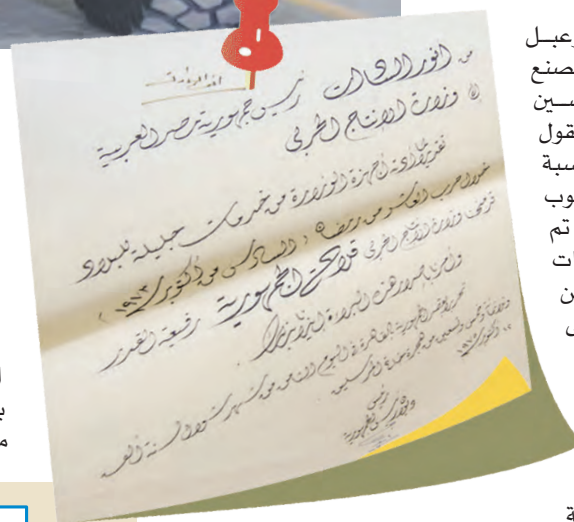 من أنور السادات رئيس جمهورية مصر العربية
إلى وزارة الإنتاج الحربي
تقديرًا لما أدته أجهزة الوزارة من خدمات جليلة للبلاد
خلال حرب العاشر من رمضان (السادس من أكتوبر ١٩٧٣)
قد منحت وزارة الإنتاج الحربي قلادة الجمهورية رفيعة القدر
وأمرنا بإصدار هذه البراءة إيذانًا بذلك
تحريرًا بقصر الجمهورية بالقاهرة في اليوم الثامن من شهر شوال سنة ألف
وثلاثمائة وخمس وتسعين من هجرة خاتم المرسلين
رئيس
ـوعبـل
صنع
ـسين
قول
سبة
وب
تم
ات
ن